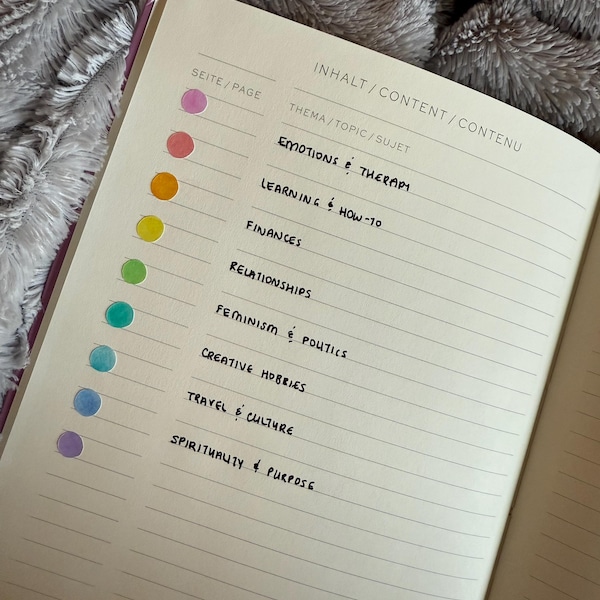 INHALT / CONTENT / CONTENU
SEITE / PAGE
THEMA / TOPIC / SUJET
EMOTIONS & THERAPY
LEARNING & HOW-TO
FINANCES
RELATIONSHIPS
FEMINISM & POLITICS
CREATIVE HOBBIES
TRAVEL & CULTURE
SPIRITUALITY & PURPOSE